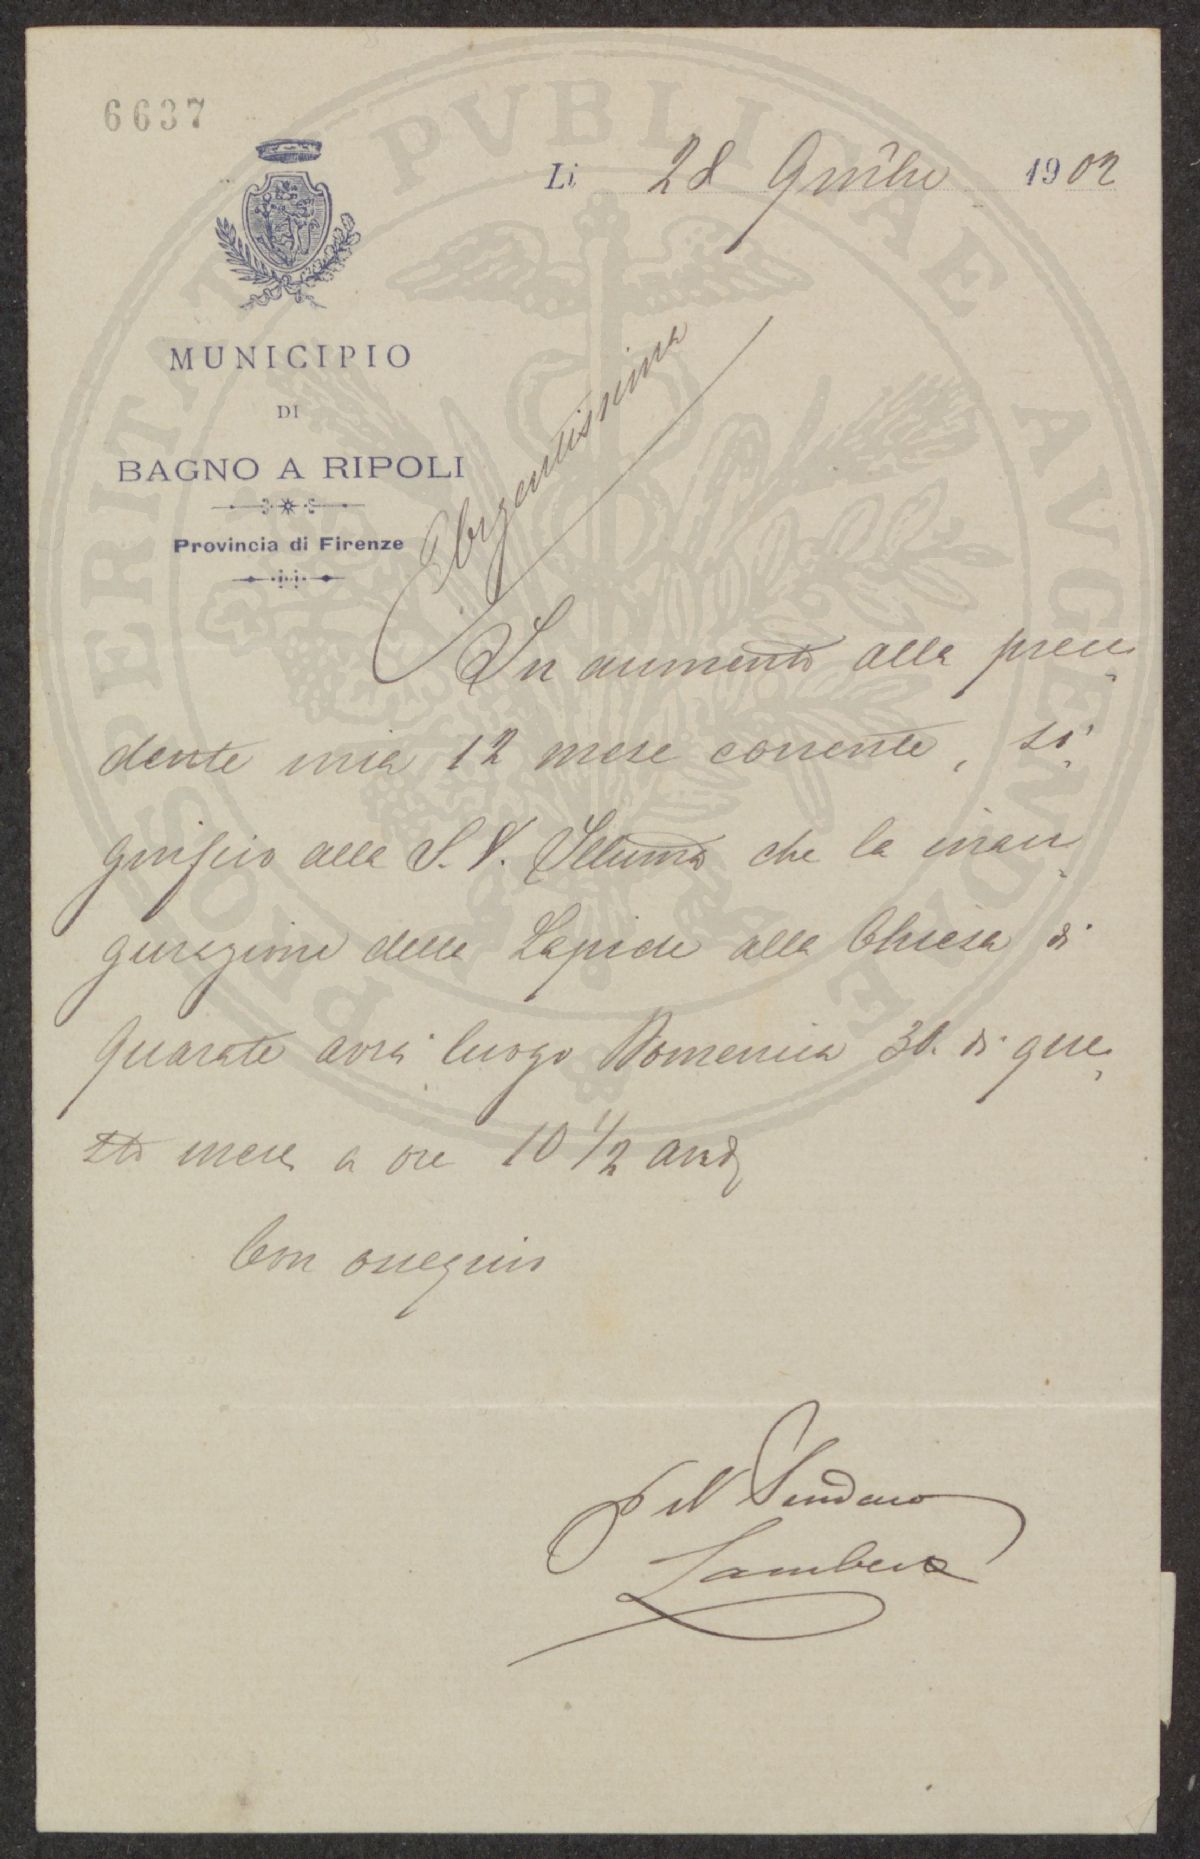 6637
Li 28 9mbre 1902
MUNICIPIO
DI
BAGNO A RIPOLI
Provincia di Firenze
Urgentissima
In aumento alla prece-
dente mia 12 mese corrente, si-
gnifico alla S. V. Illuma che la inau-
gurazione della Lapide alla Chiesa di
Quarate avrà luogo Domenica 30 di que-
sto mese a ore 10 1/2 and
Con ossequio
p il Sindaco
PROSPERITATI PVBLICAE AVGENDAE